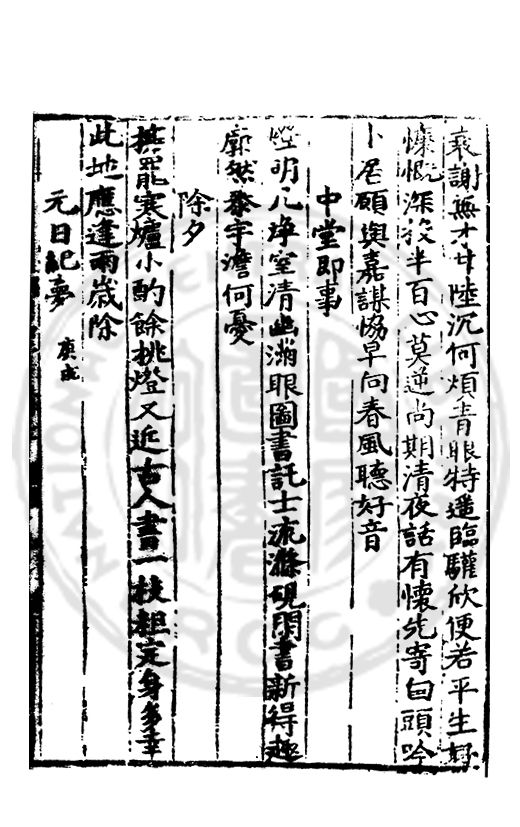 衰謝無才甘陸沉何煩青眼特遥臨驩欣便若平生好
慷慨深於半百心莫逆尚期清夜話有懷先寄白頭吟
卜居願與嘉謀協早向春風聽好音
中堂即事
牕明几淨室清幽滿眼圖書託士流滌硯閑書新得趣
廓然泰宇澹何憂
除夕
撥罷寒爐小酌餘挑燈又近古人書一枝粗定身多幸
此地應逢兩歲除
元日紀夢 庚戌